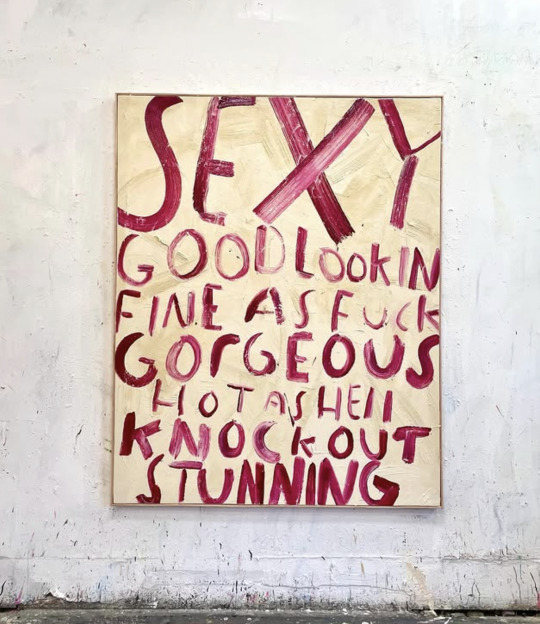 SEXY
GOODLOOKIN
FINE AS FUCK
GORGEOUS
HOT AS HELL
KNOCKOUT
STUNNING